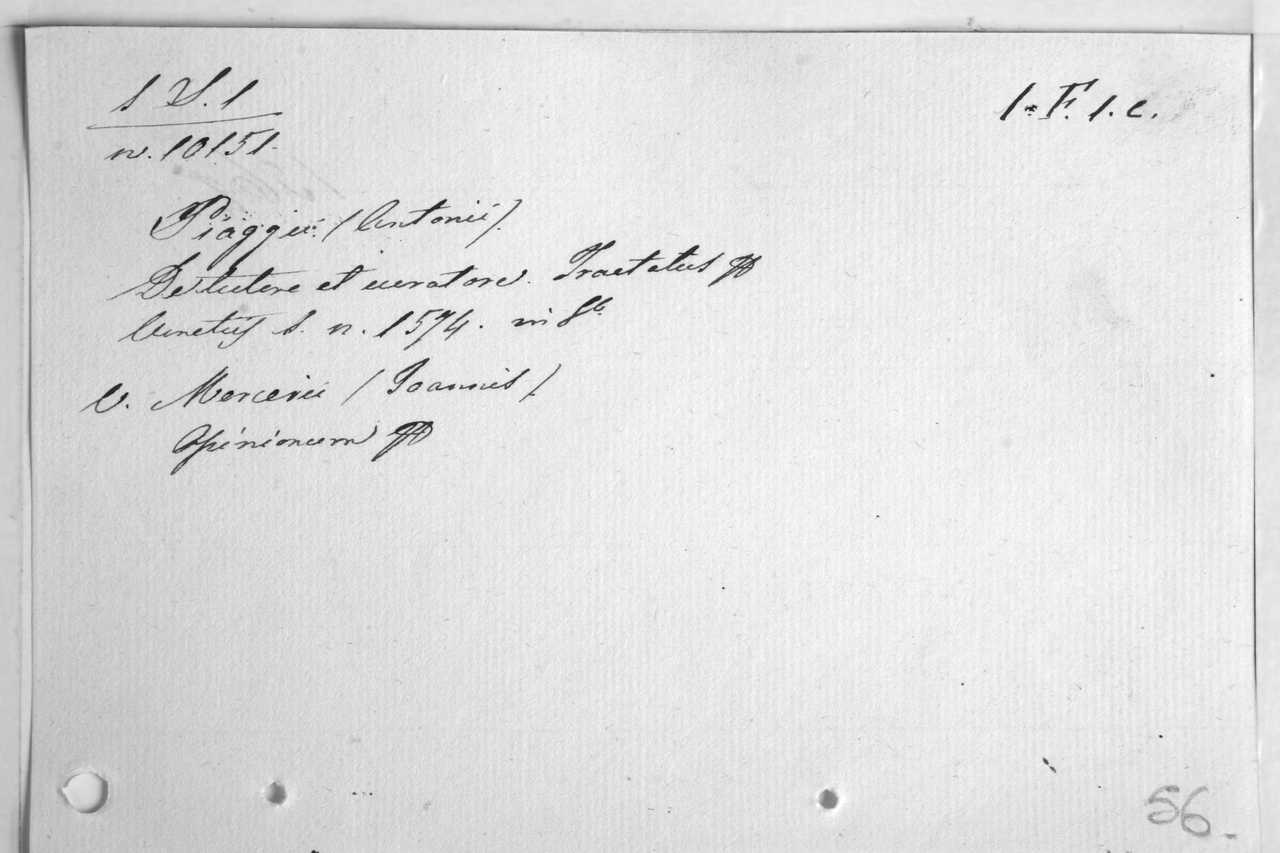 1 S. 1
n. 10151.
1. F. 1. c.
Piaggii (Antonii).
De tutore et curatore. Tractatus
s. n. 1574. in 8º
V. Mercerii (Joannis)
Opinionum
56.